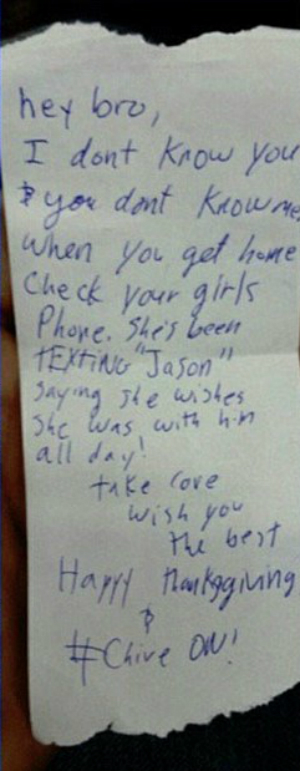 hey bro,
I dont know you
& you dont know me
when you get home
Check your girls
Phone. She's been
TEXTING "Jason"
saying she wishes
she was with him
all day!
take care
wish you
the best
Happy thanksgiving
&
#Chive ON!